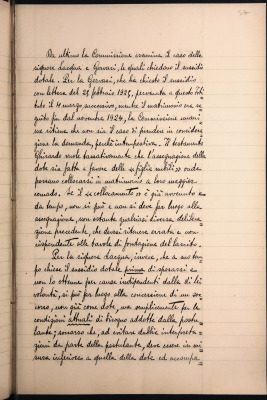 Da ultimo la Commissione esamina il caso delle
signore Lacqua e Gervasi, le quali chiedono il sussidio
dotale. Per la Gervasi, che ha chiesto il sussidio
con lettera del 28 febbraio 1925, pervenuta a questo Isti
tuto il 4 marzo successivo, mentre il matrimonio era se
guito fin dal novembre 1924, la Commissione unani
me ritiene che non sia il caso di prendere in conside
razione la domanda, perché intempestiva. Il testamento
Ghirardi vuole tassativamente che l'assegnazione della
dote sia fatta a favore delle "figlie nubili" onde
possano collocarsi in matrimonio a loro maggior
comodo. Se il "collocamento" è già avvenuto
da tempo, non si può e non si deve far luogo alla
assegnazione, non ostante qualsiasi diversa delibera
zione precedente, che devesi ritenere errata e non
rispondente alle tavole di fondazione del lascito.
Per la signora Lacqua, invece, che a suo tem
po chiese il sussidio dotale prima di sposarsi e
non lo ottenne per cause indipendenti dalla di lei
volontà, si può far luogo alla concessione di un soc
corso, non già come dote, ma semplicemente per le
condizioni attuali di bisogno addotte dalla postu
lante; soccorso che, ad evitare dubbie interpreta
zioni da parte della postulante, deve essere in mi
sura inferiore a quella della dote ed accompa